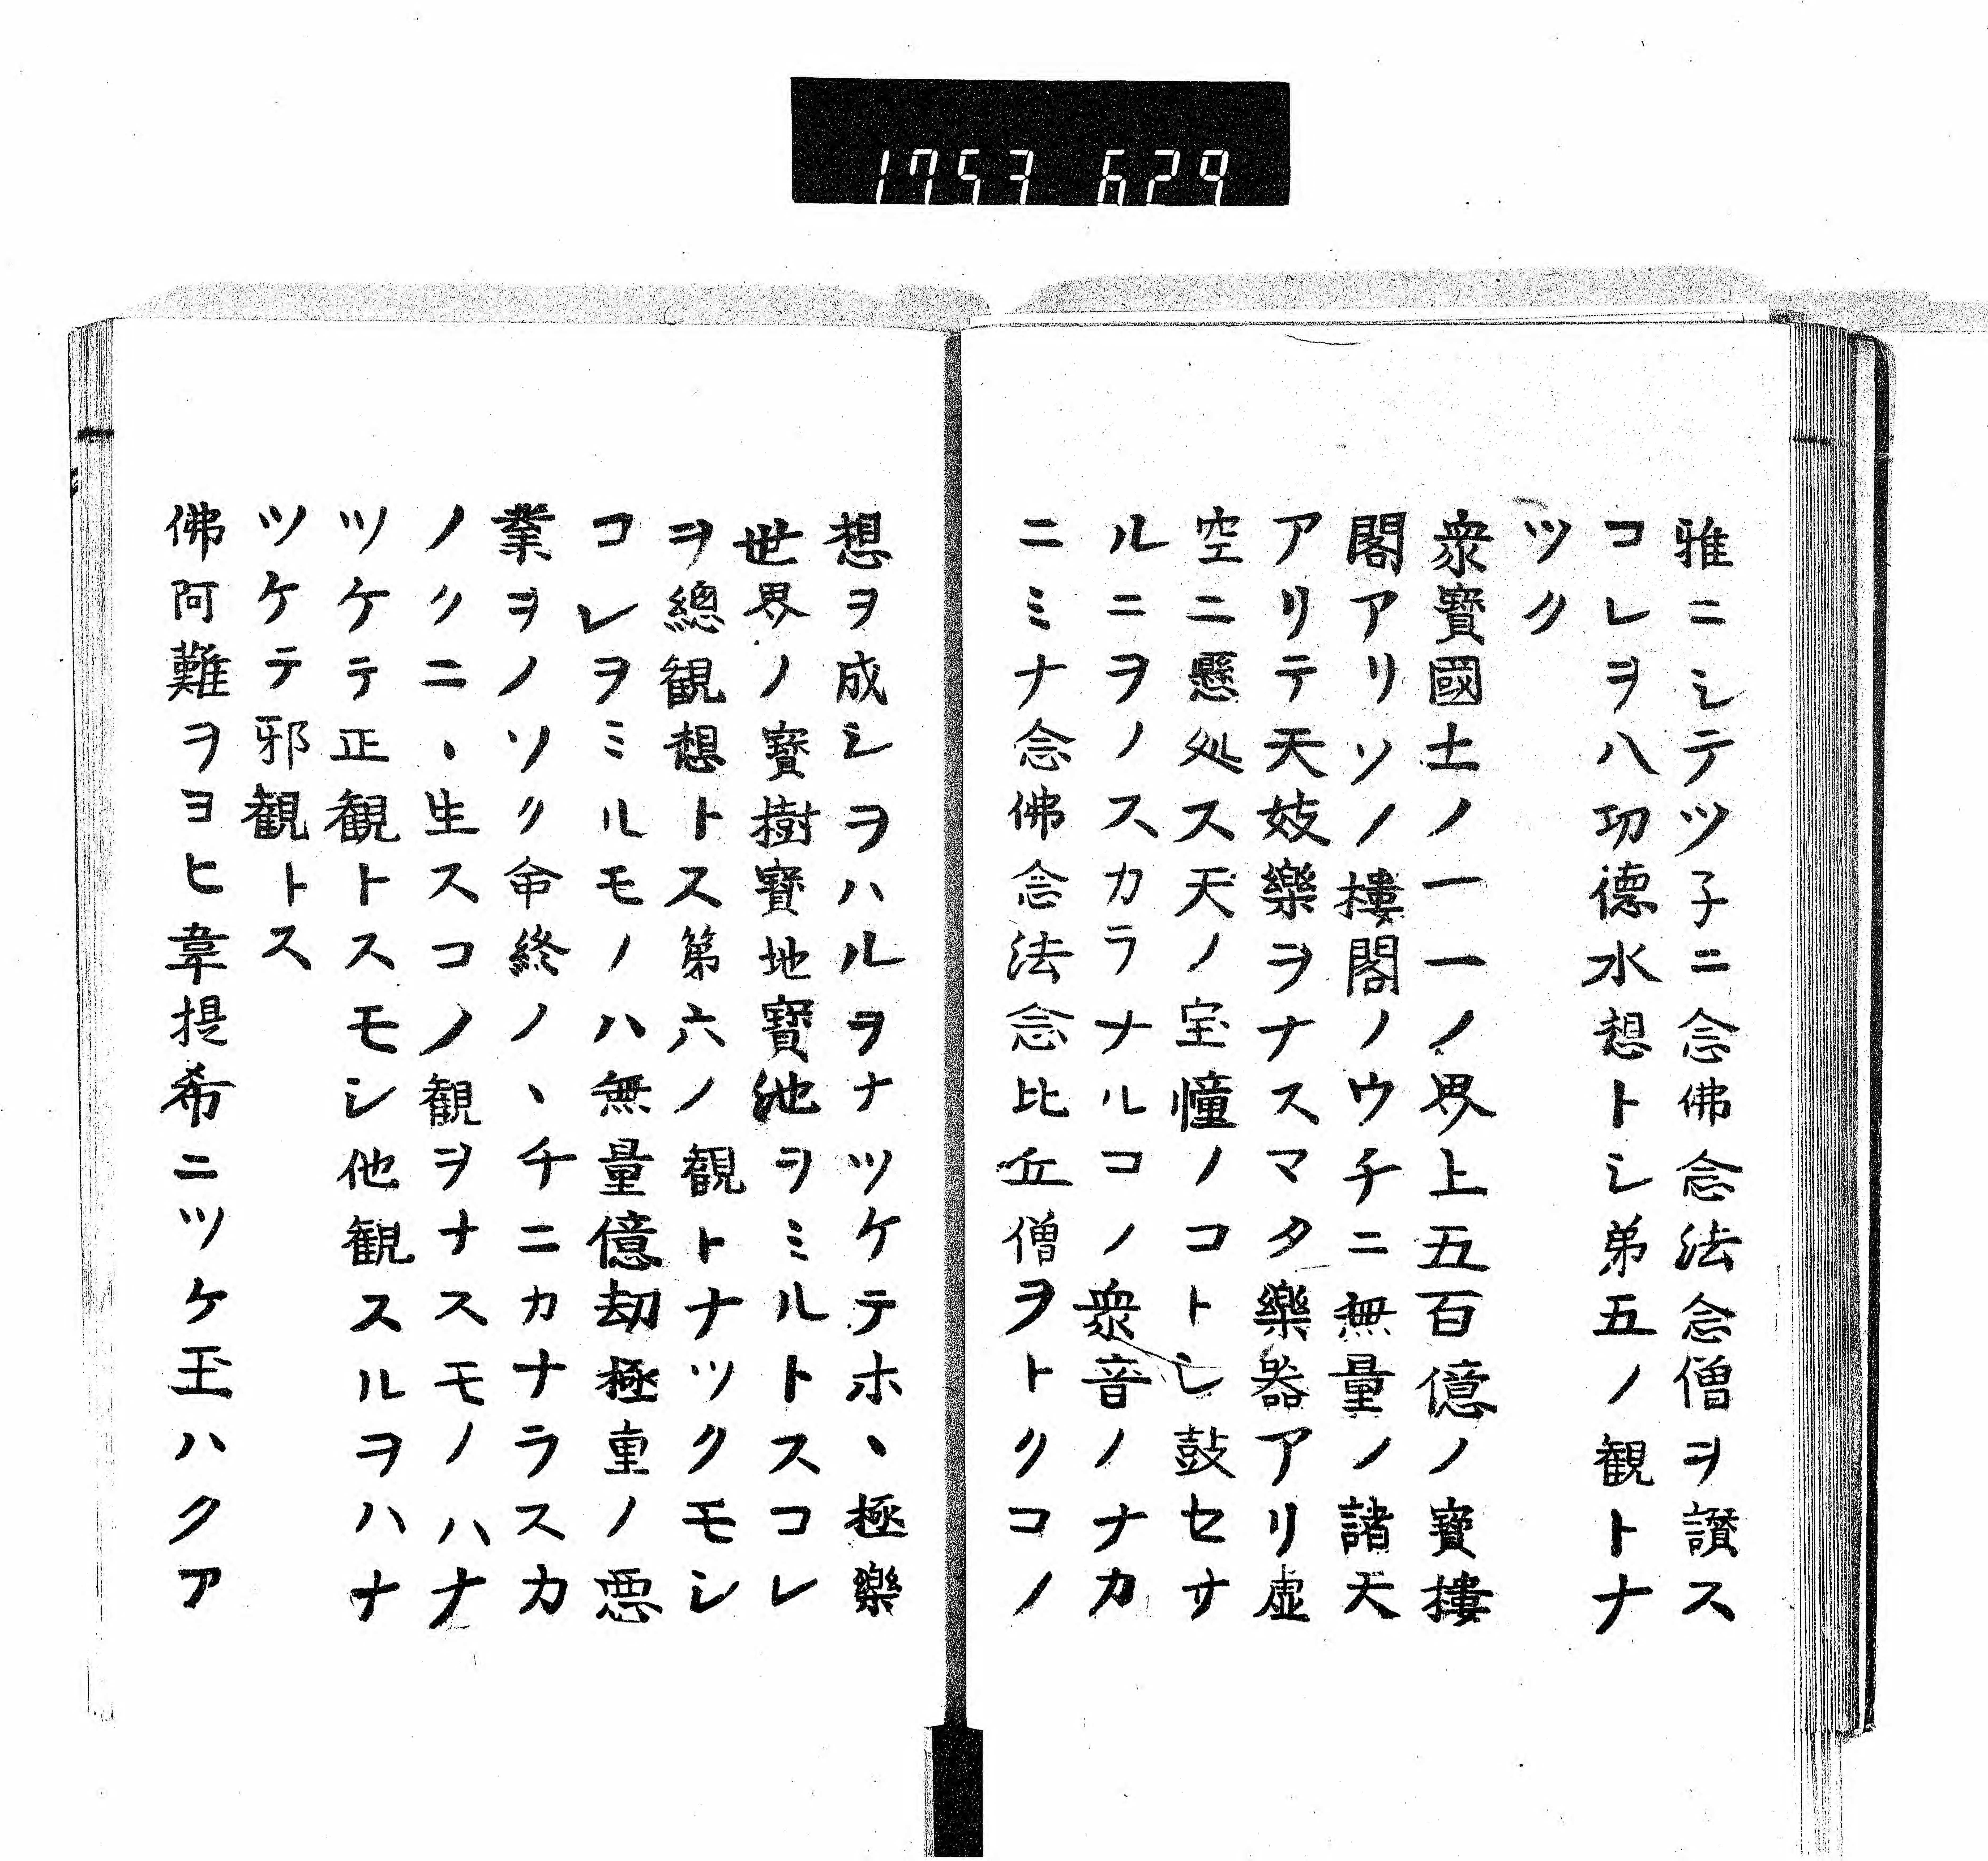 1753 629
雅ニシテツ子ニ念佛念法念僧ヲ讃ス
コレヲ八功徳水想トシ弟五ノ観トナ
ツク
衆寳國土ノ一一ノ界上五百億ノ寳樓
閣アリソノ樓閣ノウチニ無量ノ諸天
アリテ天妓樂ヲナスマタ樂器アリ虚
空ニ懸処ス天ノ宝幢ノコトシ鼓セサ
ルニヲノスカラナルコノ衆音ノナカ
ニミナ念佛念法念比丘僧ヲトクコノ
想ヲ成シヲハルヲナツケテホヽ極樂
世界ノ寳樹寳地寳池ヲミルトスコレ
ヲ總観想トス第六ノ観トナツクモシ
コレヲミルモノハ無量億劫極重ノ悪
業ヲノソク命終ノヽチニカナラスカ
ノクニヽ生スコノ観ヲナスモノハナ
ツケテ正観トスモシ他観スルヲハナ
ツケテ邪観トス
佛阿難ヲヨヒ韋提希ニツケ玉ハクア